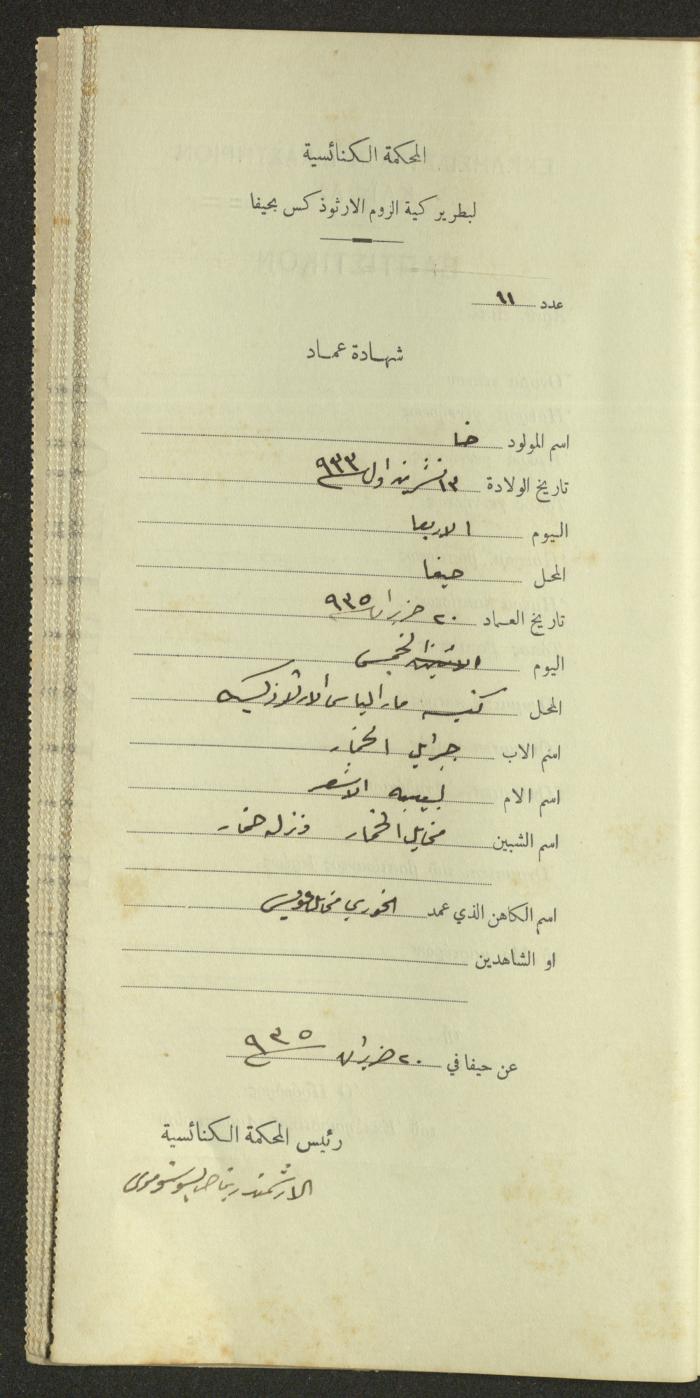 المحكمة الكنائسية
لبطريركية الروم الارثوذكس بحيفا
عدد ٩١
شهادة عماد
اسم المولود حنا
تاريخ الولادة ١٣ تشرين اول ٩٣٣
اليوم الاربعا
المحل حيفا
تاريخ العماد ٢٠ حزيران ٩٣٥
اليوم الخميس
المحل كنيسه مار الياس الارثوذكسيه
اسم الاب جبرايل الخمار
اسم الام لبيبه الاشقر
اسم الشبين مخايل الخمار ونزله خمار
اسم الكاهن الذي عمد الخوري مخايل
او الشاهدين
عن حيفا في ٢٠ حزيران ٩٣٥
رئيس المحكمة الكنائسية
الارشمندريت